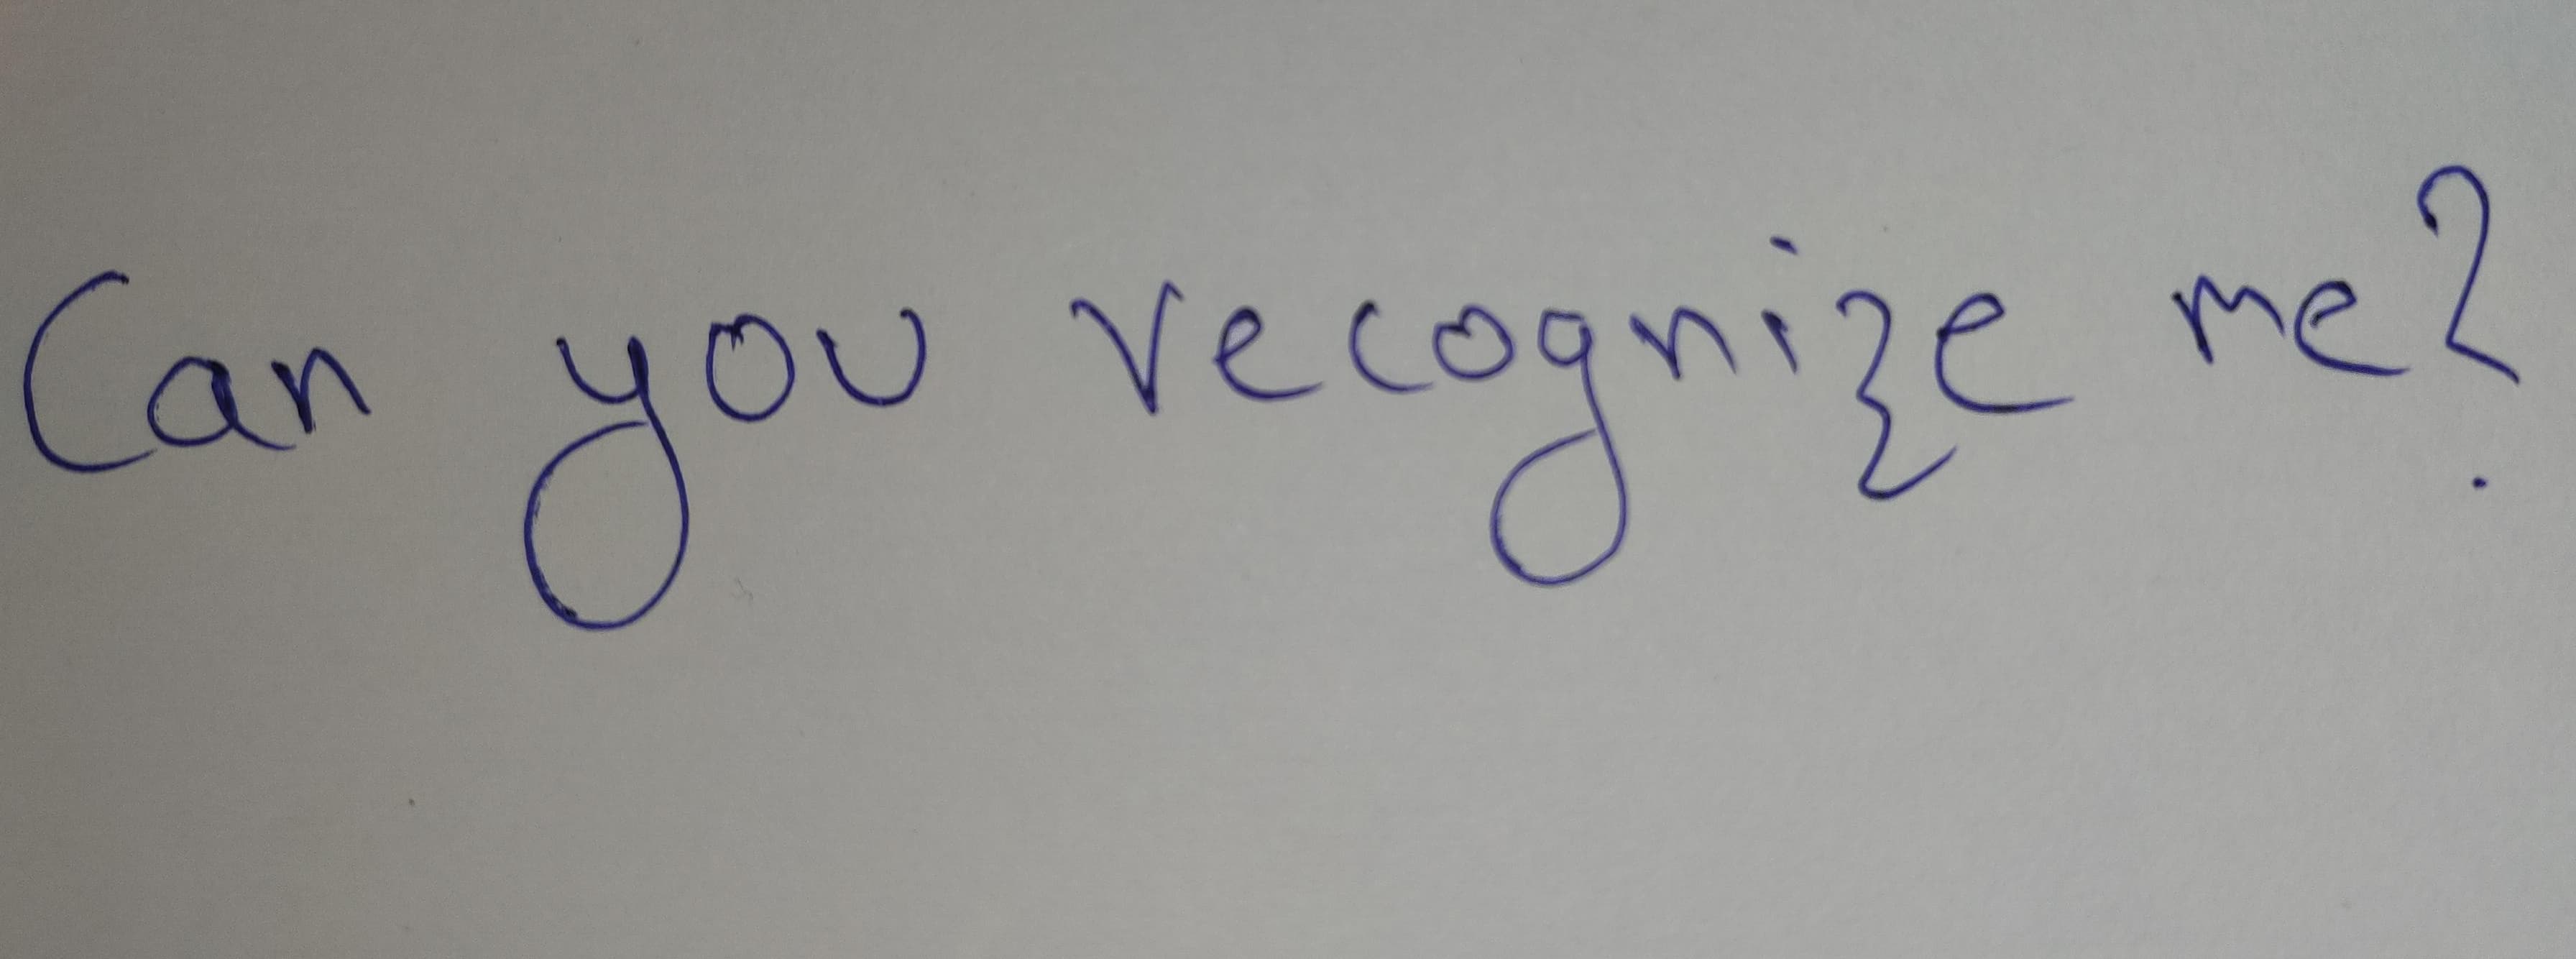 Can you recognize me?